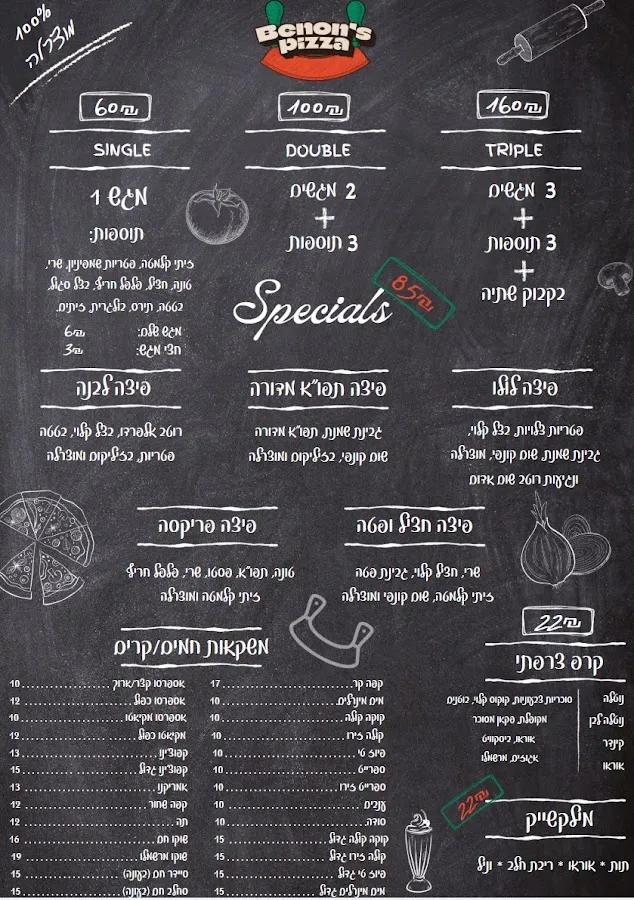 100%
מוצרלה
Benon's
pizza
60₪
SINGLE
מגש 1
תוספות:
זיתי קלמטה, פטריות שמפיניון, שרי,
טונה, חציל, פלפל חריף, בצל סגול,
בטטה, תירס, בולגרית, זיתים.
מגש שלם: 6₪
חצי מגש: 3₪
100₪
DOUBLE
2 מגשים
+
3 תוספות
160₪
TRIPLE
3 מגשים
+
3 תוספות
+
בקבוק שתיה
Specials
85₪
פיצה לבנה
רוטב אלפרדו, בצל קלוי, בטטה
פטריות, בזיליקום ומוצרלה
פיצה תפו"א מדורה
גבינת שמנת, תפו"א מדורה
שום קונפי, בזיליקום ומוצרלה
פיצה לולו
פטריות צלויות, בצל קלוי,
גבינת שמנת, שום קונפי, מוצרלה
ונגיעות רוטב שום אדום
פיצה פריקסה
טונה, תפו"א, פסטו, שרי, פלפל חריף
זיתי קלמטה ומוצרלה
פיצה חציל ופטה
שרי, חציל קלוי, גבינת פטה
זיתי קלמטה, שום קונפי ומוצרלה
משקאות חמים/קרים
אספרסו קצר/ארוך 10
אספרסו כפול 12
אספרסו מקיאטו 10
מקיאטו כפול 12
קפוצ'ינו 13
קפוצ'ינו גדול 15
אמריקנו 13
קפה שחור 12
תה 12
שוקו חם 16
שוקו מרשמלו 19
סיידר חם (בעונה) 15
סחלב חם (בעונה) 15
קפה קר 17
מים מינרלים 10
קוקה קולה 10
קולה זירו 10
פיוז טי 10
ספרייט 10
ספרייט זירו 10
ענבים 10
סודה 10
קוקה קולה גדול 15
קולה זירו גדול 15
פיוז טי גדול 15
מים מינרלים גדול 15
22₪
קרפ צרפתי
נוטלה
נוטלה לבן
קינדר
אוראו
סוכריות צבעוניות, קוקוס קלוי, בוטנים
מקופלת, פקאן מסוכר
אוראו, ביסקוויט
אגוזים, מרשמלו
22₪
מילקשייק
תות * אוראו * ריבת חלב * וניל